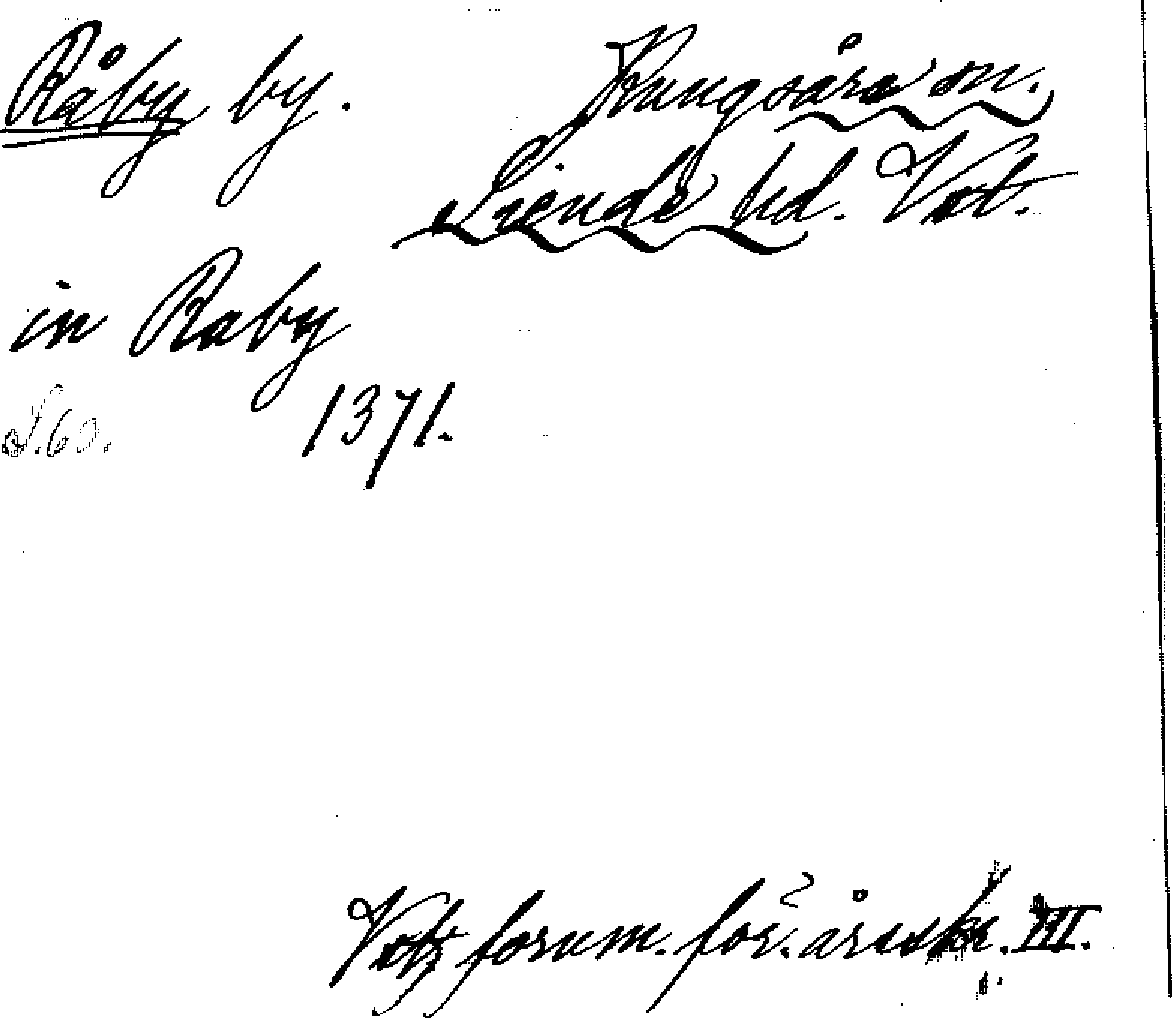 Råby by. Kungsåra sn.
Siende hd. Vstm.
in Raby
S. 60. 1371.
fornm. för. årsskr. III.